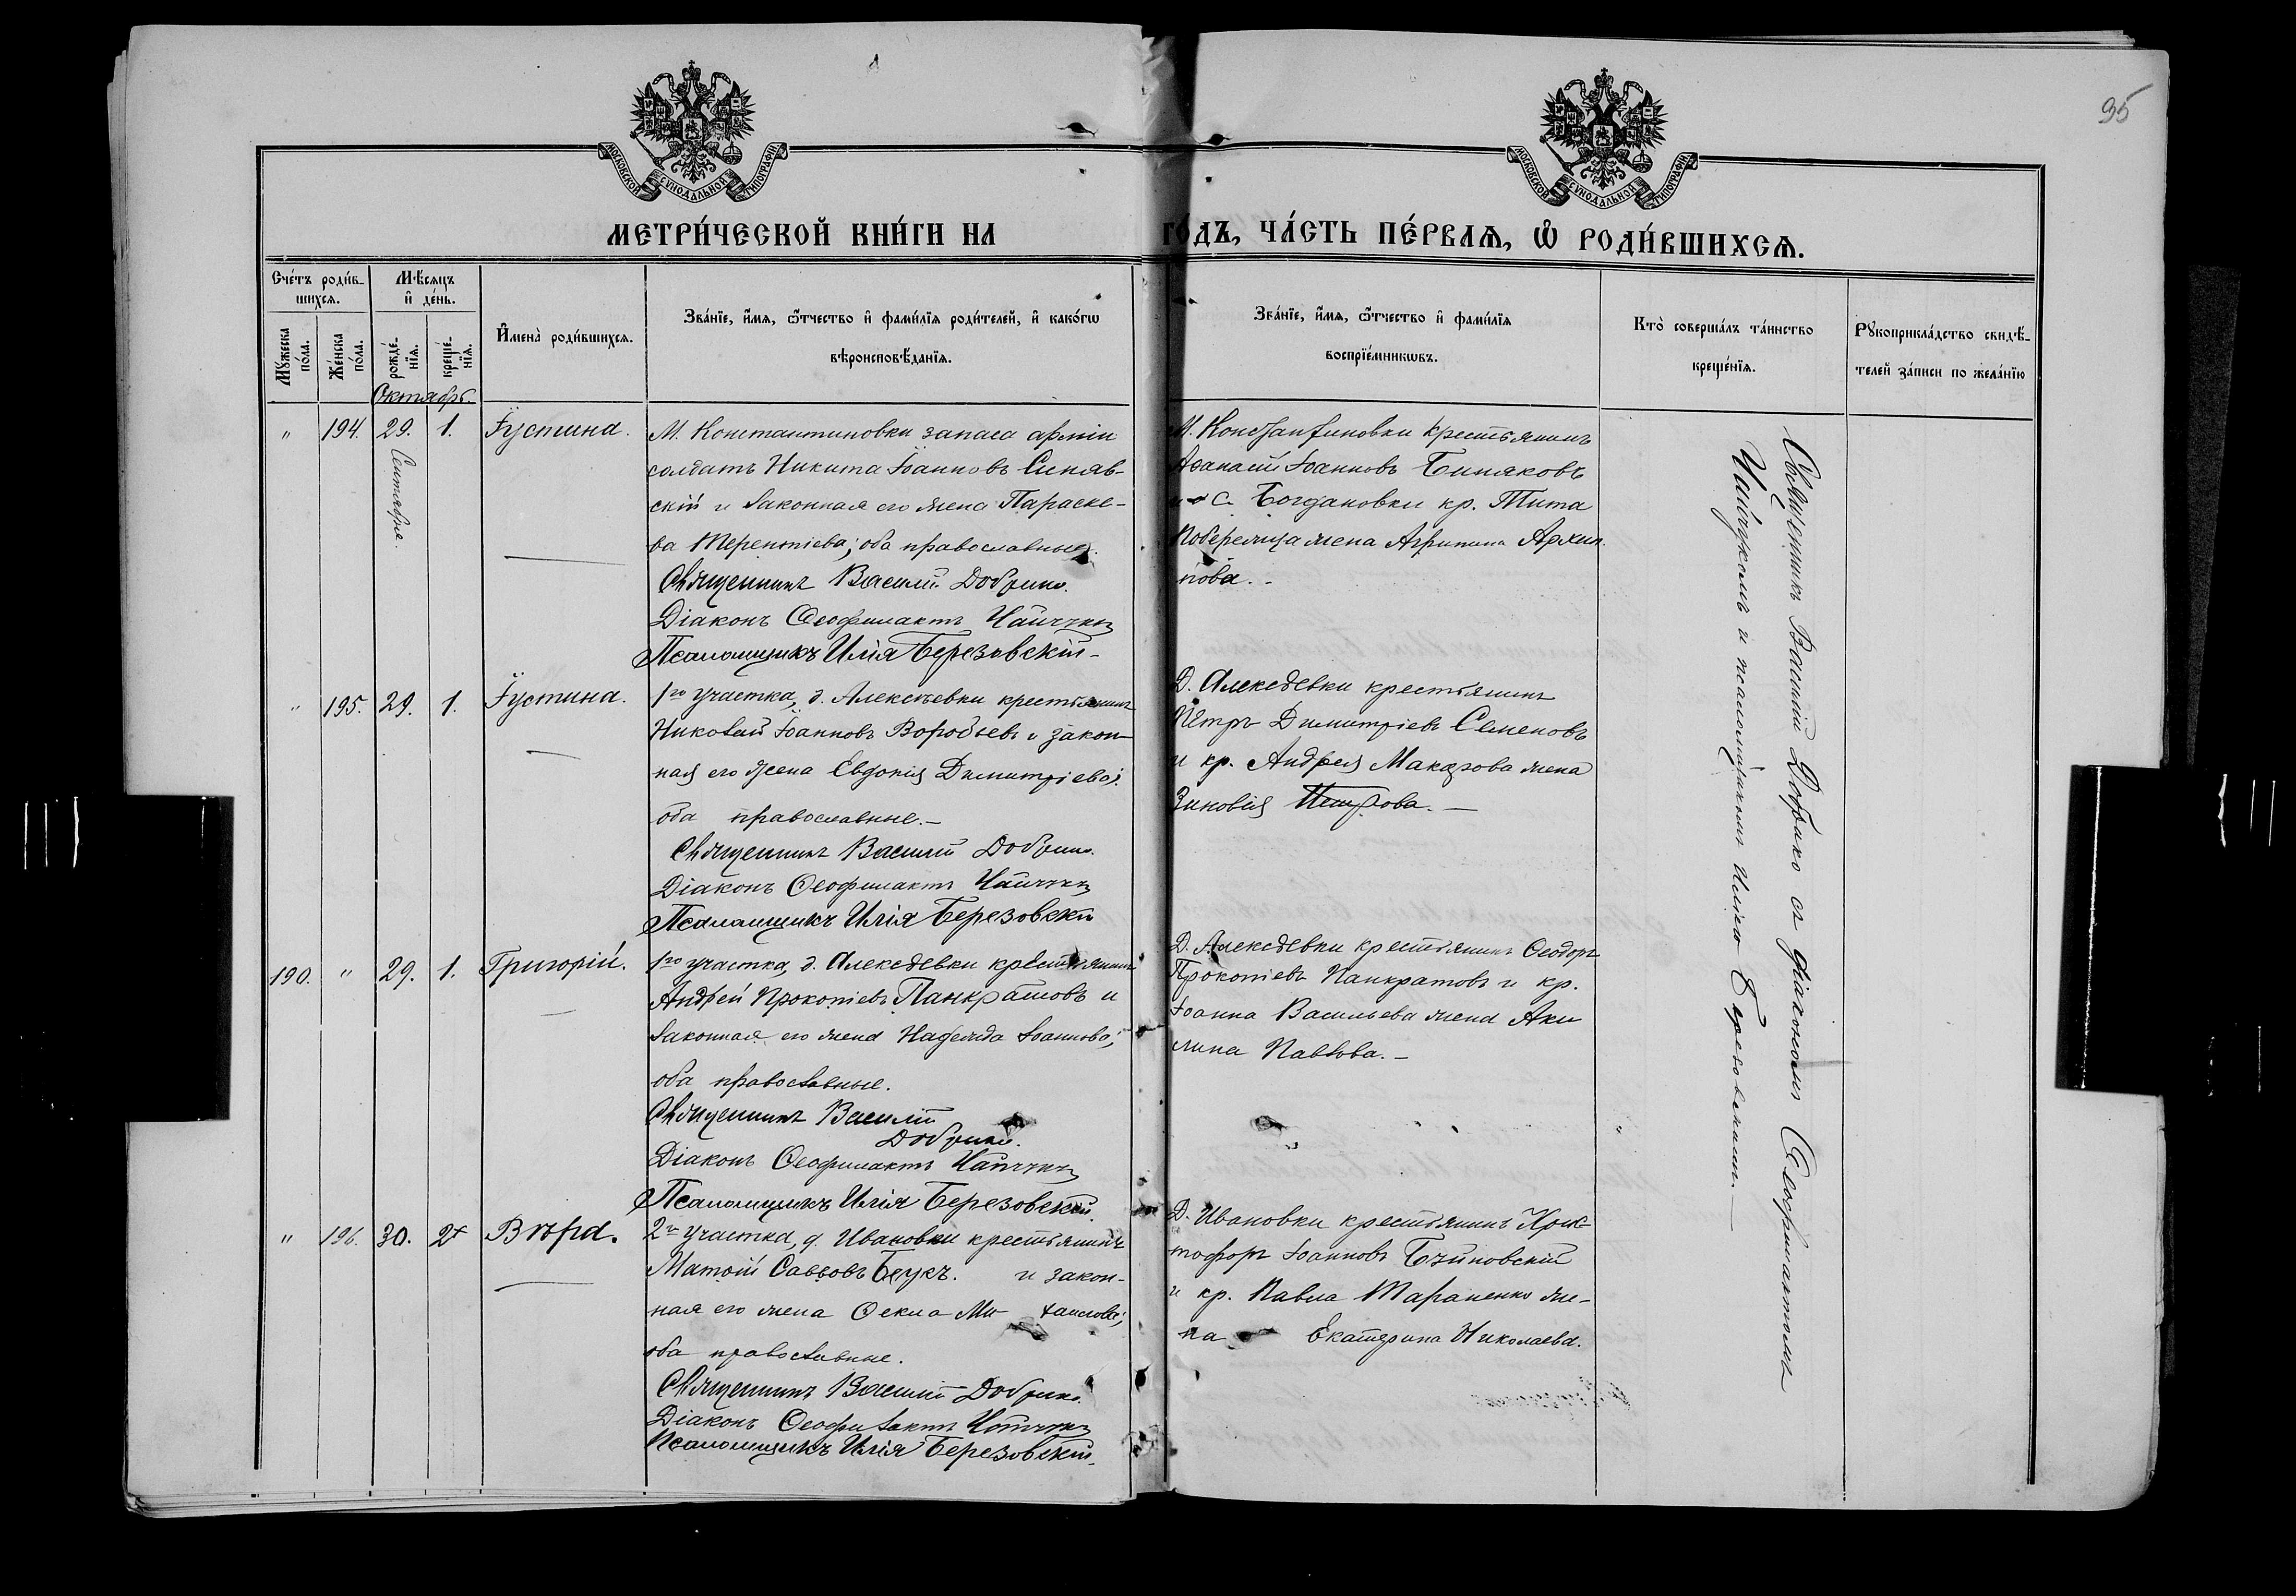 95
МОСКОВСКОЙ СѴНОДАЛЬНОЙ ТИПОГРАФІИ
МОСКОВСКОЙ СѴНОДАЛЬНОЙ ТИПОГРАФІИ
МЕТРИ́ЧЕСКОЙ КНИ́ГИ НА ГО́ДЪ, ЧА́СТЬ ПЕ́РВАѦ, Ѡ҆ РОДИ́ВШИХСѦ.
Сче́тъ роди́в-
шихсѧ.
Мꙋ́жеска по́ла.
Же́нска по́ла.
Мѣ́сѧцъ
и҆ де́нь.
рожде́-нїѧ.
креще́-нїѧ.
И҆мена̀ роди́вшихсѧ.
Зва́нїе, и҆́мѧ, ѻ҆́тчество и҆ фами́лїѧ роди́телей, и҆ како́гѡ
вѣроисповѣ́данїѧ.
Зва́нїе, и҆́мѧ, ѻ҆́тчество и҆ фами́лїѧ
воспрїе́мникѡвъ.
Кто̀ соверша́лъ та́инство
креще́нїѧ.
Рꙋкоприкла́дство свидѣ́-
телей за́писи по жела́нїю
Октябрь.
" 194. 29. 1. Іустина.
Сентября.
М. Константиновки запаса арміи
солдатъ Никита Іоанновъ Синяв-
скій и законная его жена Параске-
ва Терентіева; оба православные.
Священникъ Василій Добрико.
Діаконъ Ѳеофилактъ Чайчукъ
Псаломщикъ Илія Березовскій
М. Константиновки крестьянинъ
Аѳанасій Іоанновъ Биняковъ
и С. Богдановки кр. Тита
Побережца жена Агрипина Архип-
пова.
" 195. 29. 1. Іустина.
1го участка, д. Алексѣевки крестьянинъ
Николай Іоанновъ Воробьевъ и закон-
ная его жена Евдокія Димитріева;
оба православные.
Священникъ Василій Добрико.
Діаконъ Ѳеофилактъ Чайчукъ
Псаломщикъ Илія Березовскій
Д. Алексѣевки крестьянинъ
Петръ Димитріевъ Семеновъ
и кр. Андрея Макарова жена
Зиновія Петрова.
190. " 29. 1. Григорій.
1го участка, д. Алексѣевки крестьянинъ
Андрей Прокопіевъ Панкратовъ и
законная его жена Надежда Іоаннова;
оба православные.
Священникъ Василій
Добрико.
Діаконъ Ѳеофилактъ Чайчукъ
Псаломщикъ Илія Березовскій.
Д. Алексѣевки крестьянинъ Ѳеодоръ
Прокопіевъ Панкратовъ и кр.
Іоанна Васильева жена Аки-
лина Павлова.
" 196. 30. 2 Вѣра.
2го участка, д. Ивановки крестьянинъ
Матѳій Саввовъ Беукъ. и закон-
ная его жена Ѳекла Ми хаилова;
оба православные.
Священникъ Василій Добрико
Діаконъ Ѳеофилактъ Чайчукъ
Псаломщикъ Илія Березовскій.
Д. Ивановки крестьянинъ Хрис-
тофоръ Іоанновъ
и кр. Павла Тараненко же-
на Екатерина Николаева.
Священникъ Василій Добрико съ діакономъ Ѳеофилактомъ
Чайчукомъ и псаломщикомъ Иліею Березовскимъ.